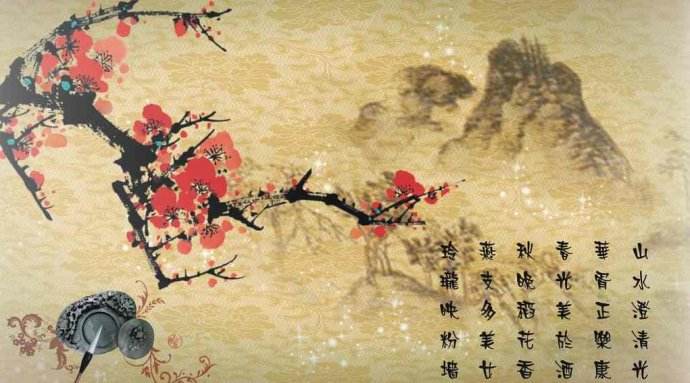 山水澄清光
華胥正樂康
春光美於酒
秋晚稻花香
燕支多美女
玲瓏映粉墙